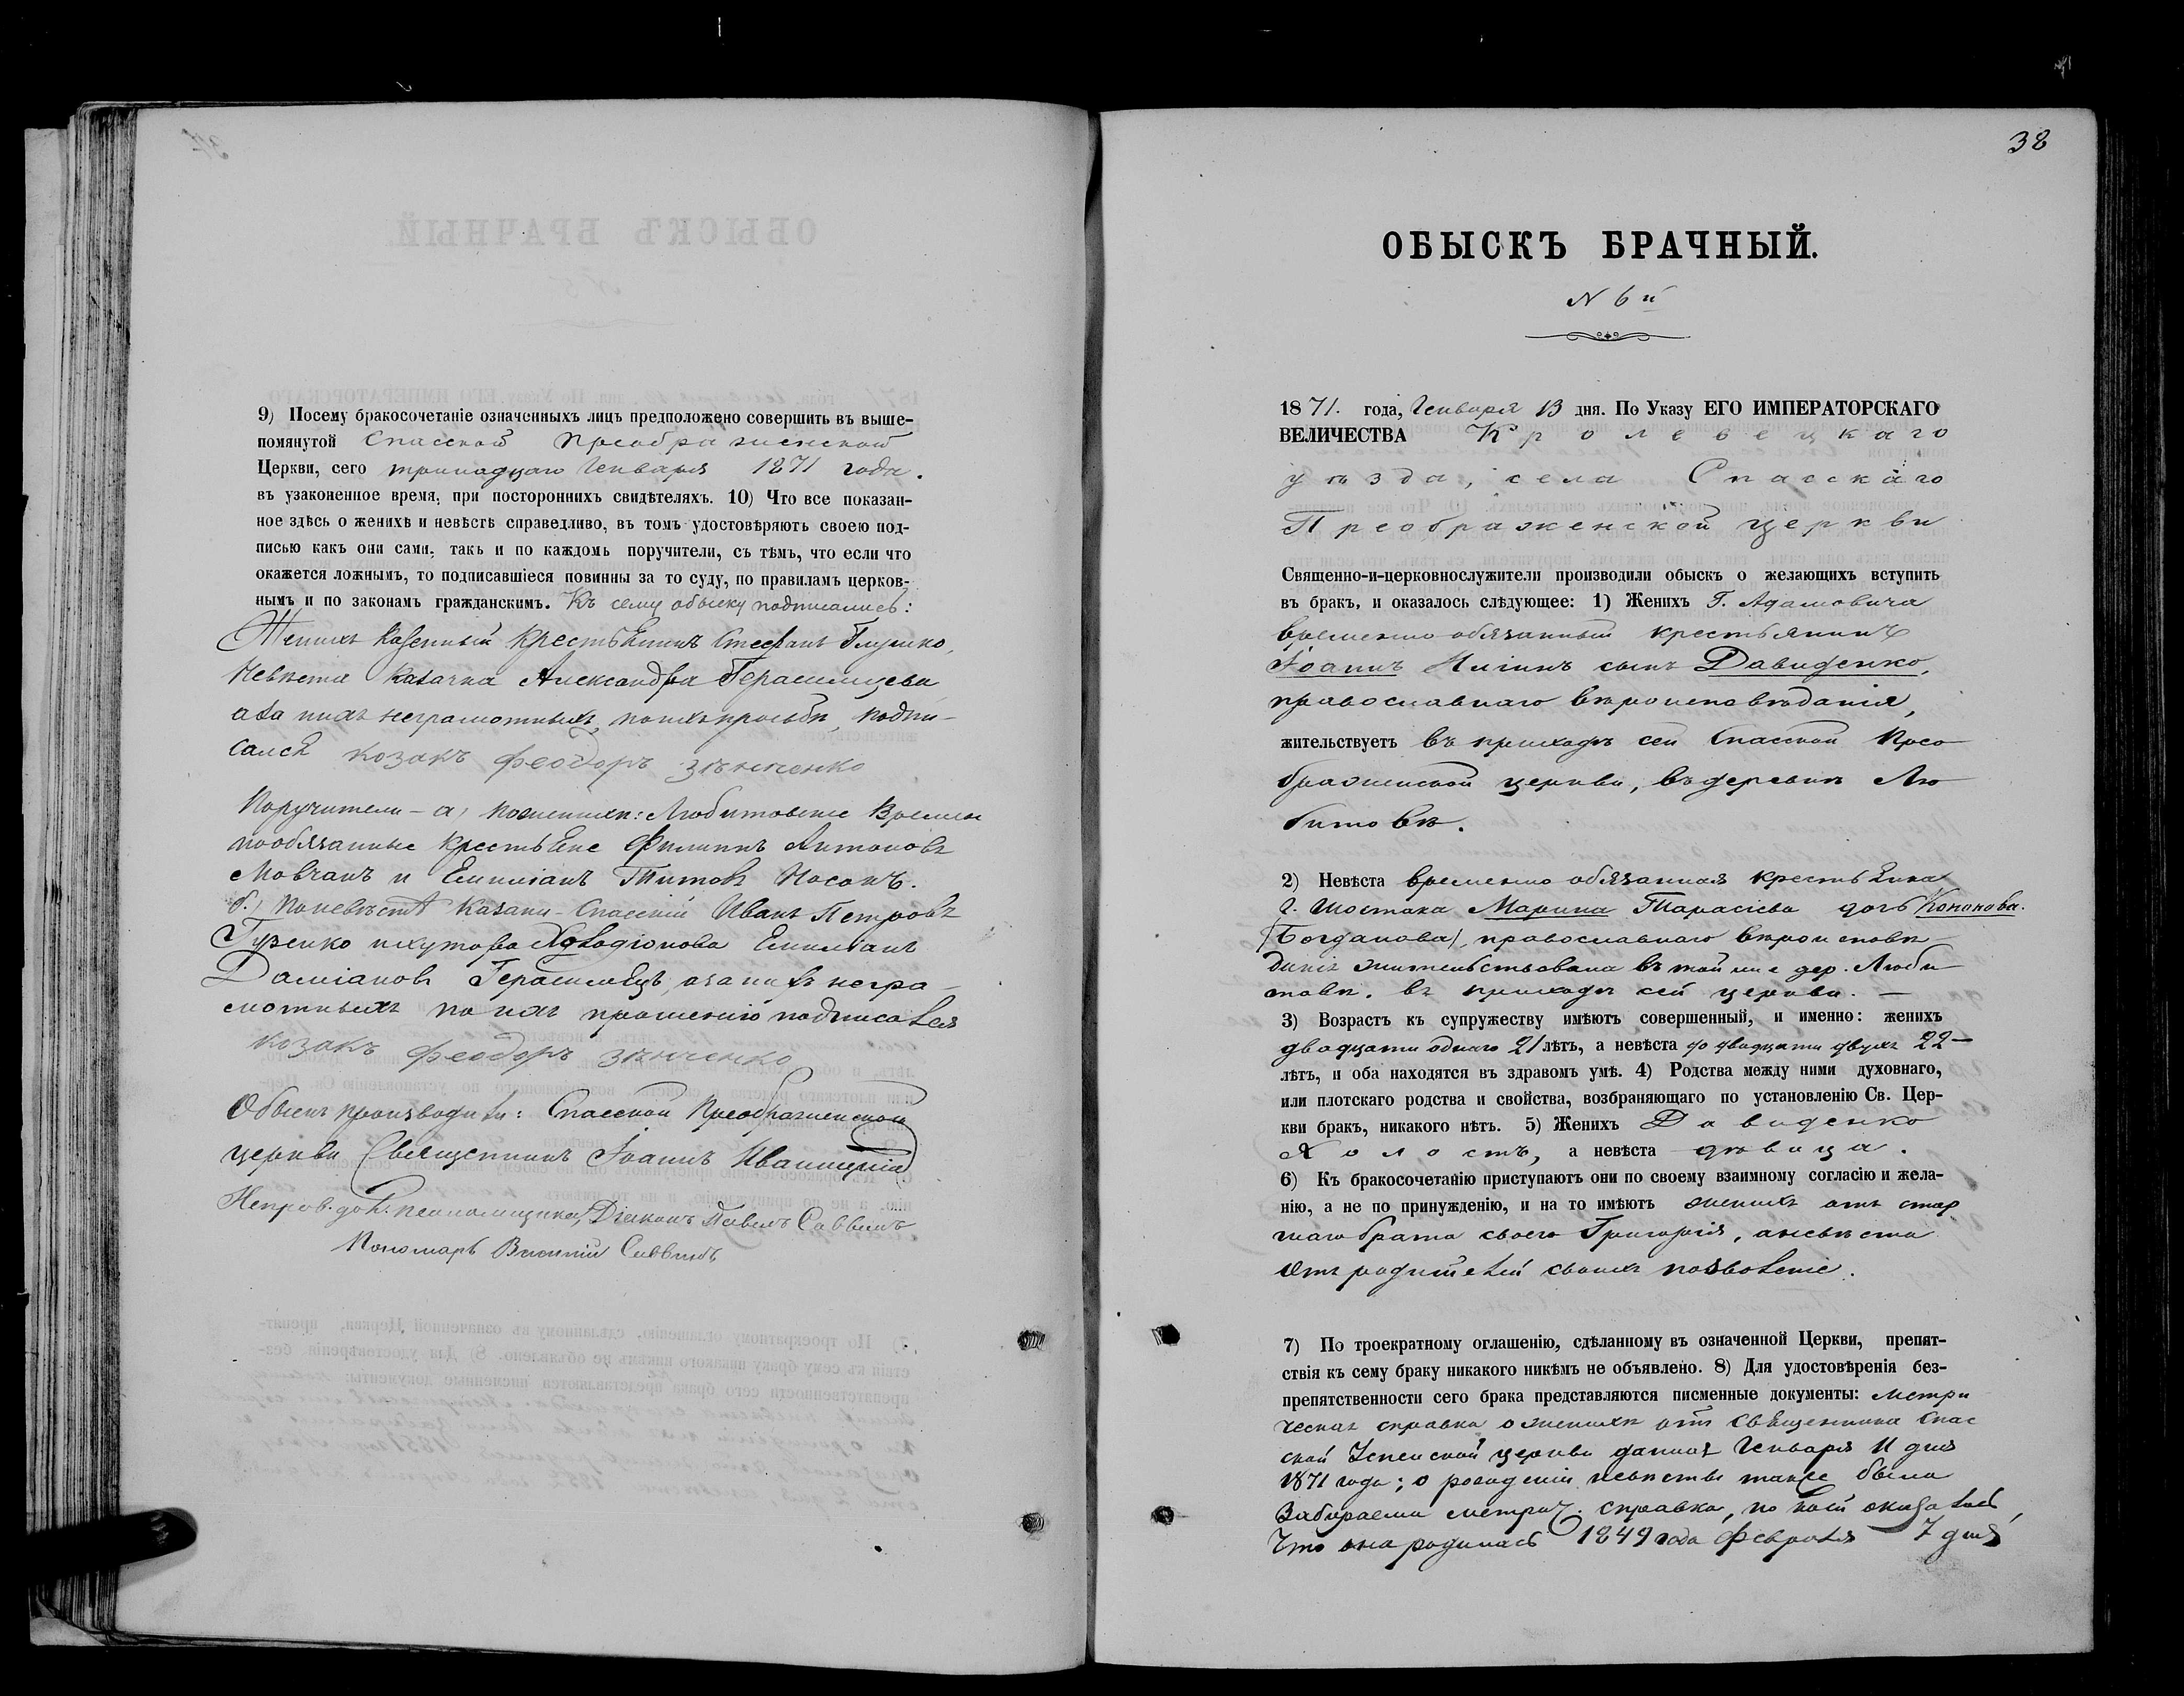 9) Посему бракосочетаніе означенныхъ лицъ предположено совершить въ выше-
помянутой Спасской Преображенской
Церкви, сего тринадцаго Генваря 1871 года.
въ узаконенное время, при постороннихъ свидѣтеляхъ. 10) Что все показан-
ное здѣсь о женихѣ и невѣстѣ справедливо, въ томъ удостовѣряютъ своею под-
писью какъ они сами, такъ и по каждомъ поручители, съ тѣмъ, что если что
окажется ложнымъ, то подписавшіеся повинны за то суду, по правиламъ церков-
нымъ и по законамъ гражданскимъ. Къ сему обыску подписались:
Женихъ казенный крестьянинъ Стефанъ Глушко,
Невѣста казачка Александра Герасимцева
а за нихъ неграмотныхъ, по ихъ просьбѣ, подпи-
сался козакъ Феодоръ Зѣнченко
Поручители – а) по женихѣ: Любитовские времен
нообязанные крестьяне Филиппъ Антоновъ
Мовчанъ и Емиліанъ Титовъ Носокъ.
б.) По невѣстѣ казаки – Спасскій Иванъ Петровъ
Гузенко и хутора Емиліанъ
Даміановъ Герасимецъ, а за ихъ негра-
мотныхъ по ихъ прошенію подписался
козакъ Феодоръ Зѣнченко
Обыскъ производили: Спасской Преображенской
церкви Священникъ Іоаннъ
Діаконъ Павелъ Саввичъ
Пономарь Саввичъ
38
ОБЫСКЪ БРАЧНЫЙ.
N 6й
1871. года, Генваря 13 дня. По Указу ЕГО ИМПЕРАТОРСКАГО
ВЕЛИЧЕСТВА Кролевецкаго
уѣзда, села Спасскаго
Преображенской церкви
Священно-и-церковнослужители производили обыскъ о желающихъ вступить
въ бракъ, и оказалось слѣдующее: 1) Женихъ Г. Адамовича
временно обязанный крестьянинъ
Іоаннъ сынъ Давиденко,
православнаго вѣроисповѣданія,
жительствуетъ въ приходѣ сей Спасской Прео
браженской церкви, въ деревнѣ Лю
битовѣ.
2) Невѣста временно обязанная крестьянка
г. Шостака Марина Тарасіева дочь Кононова.
(Богданова), православнаго вѣроисповѣ
данія жительствовала въ той же дер. Люби
товѣ. въ приходѣ сей церкви. —
3) Возрастъ къ супружеству имѣютъ совершенный, и именно: женихъ
двадцати однаго 21 лѣтъ, а невѣста до двадцати двухъ 22 —
лѣтъ, и оба находятся въ здравомъ умѣ. 4) Родства между ними духовнаго,
или плотскаго родства и свойства, возбраняющаго по установленію Св. Цер-
кви бракъ, никакого нѣтъ. 5) Женихъ Давиденко
Холостъ, а невѣста дѣвица.
6) Къ бракосочетанію приступаютъ они по своему взаимному согласію и жела-
нію, а не по принужденію, и на то имѣютъ женихъ отъ стар
шаго брата своего Григорія, а невѣста
отъ родителей своихъ позволеніе.
7) По троекратному оглашенію, сдѣланному въ означенной Церкви, препят-
ствія къ сему браку никакого никѣмъ не объявлено. 8) Для удостовѣренія без-
препятственности сего брака представляются писменные документы: Метри
ческая справка о женихѣ отъ Священника Спас
ской Успенской церкви данная Генваря 11 дня
1871 года; о рожденіи невѣсты также была
забираема метрич. справка, по коей оказалось,
Что она родилась 1849 года Февраля 7 дня